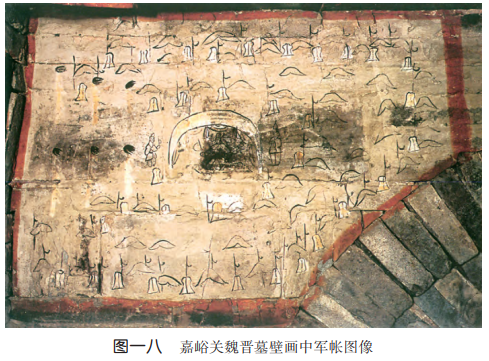 图一八 嘉峪关魏晋墓壁画中军帐图像